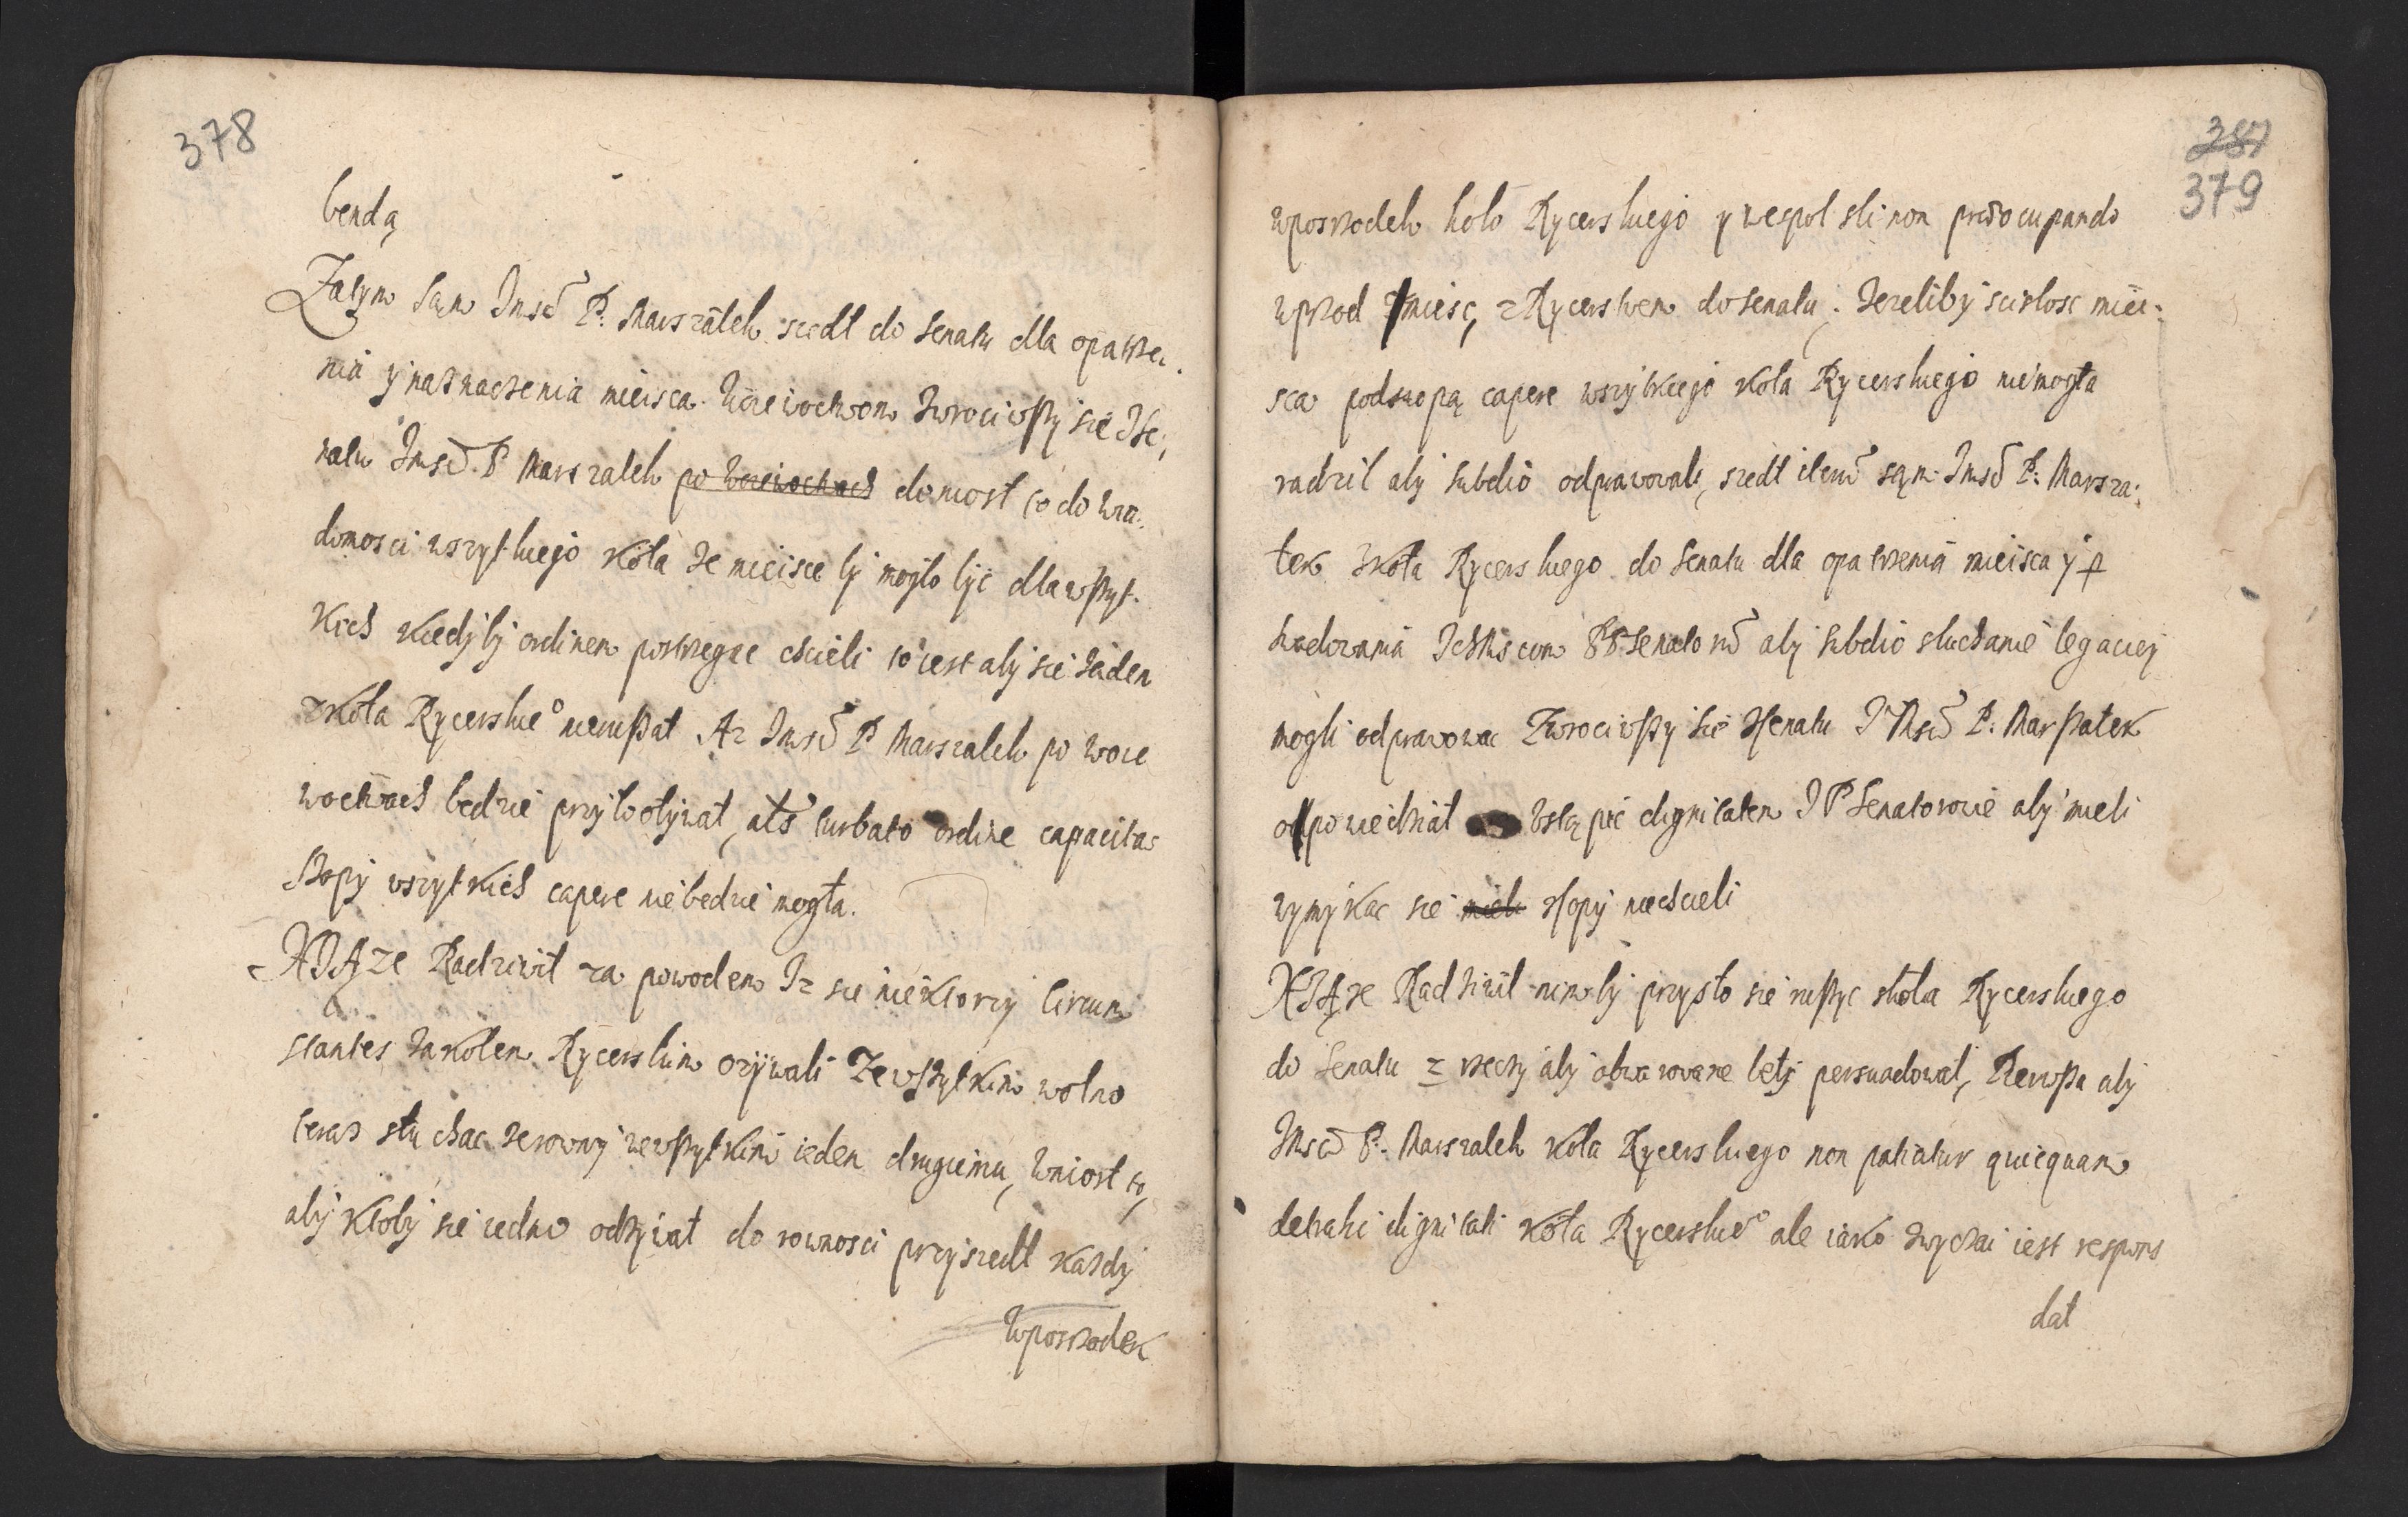 378
bendą
Zatym sąm Jmsć P. Marszałek szedł do senatu dla opatrze.
nia y naznaczenia mieisca. Woiewodztwom zwrociwszy się zse,
natu Jmsć P Marszałek po woiewodztwach doniosł to do wia.
domosci wszytkiego koła ze mieisce by mogło byc dla wszyt.
kich kiedy by ordinem postrzegac chcieli to iest aby się żaden
z koła Rycerskie° nieruszał Az Jmsć P Marszałek po woie
wodztwach bedzie przywoływał, als turbato ordine capacitas
szopy wszytkich capere niebedzie mogła.
XIĄże Radziwił za powodem Iz się niektorzy circum
stantes za kołem Rycerskim ozywali Ze wszytkim wolno
teraz słuchac ze rowny ze wszytkimi ieden drugiemu, wniosł to,
aby ktoby się iedno odzywał do rownosci przyszedł kazdy
wposrzodek
387
379
wposrzodek koło Rycerskiego y wespoł sli non preoccupando
wprzod miesc, z Rycerstwem do senatu. Jezeliby scisłosc miei:
sca podszopą capere wszytkiego koła Rycerskiego niemogła
radził aby subdio odprawowali, szedł iterum sąm Jmsć P. Marsza:
łek zkoła Rycerskiego do senatu dla opatrzenia mieisca y p
swadowania Ichmsciom PP senatorom aby subdio słuchanie legaciey
mogli odprawowac Zwrociwszy się zsenatu JMsć P. Marszałek
opowiedział ustąpic dignitatem I P senatorowie aby mieli
wymykac się mieli zszopy niechcieli
XIĄże Radziwił nim by przyszło się ruszyc zkoła Rycerskiego
do senatu z rzeczy aby obwarowane były perswadował, Pierwsza aby
Jmsć P. Marszałek koła Rycerskiego non patiatur quicquam
detrahi dignitati koła Rycerskie° ale iako zwyczai iest respons
dał